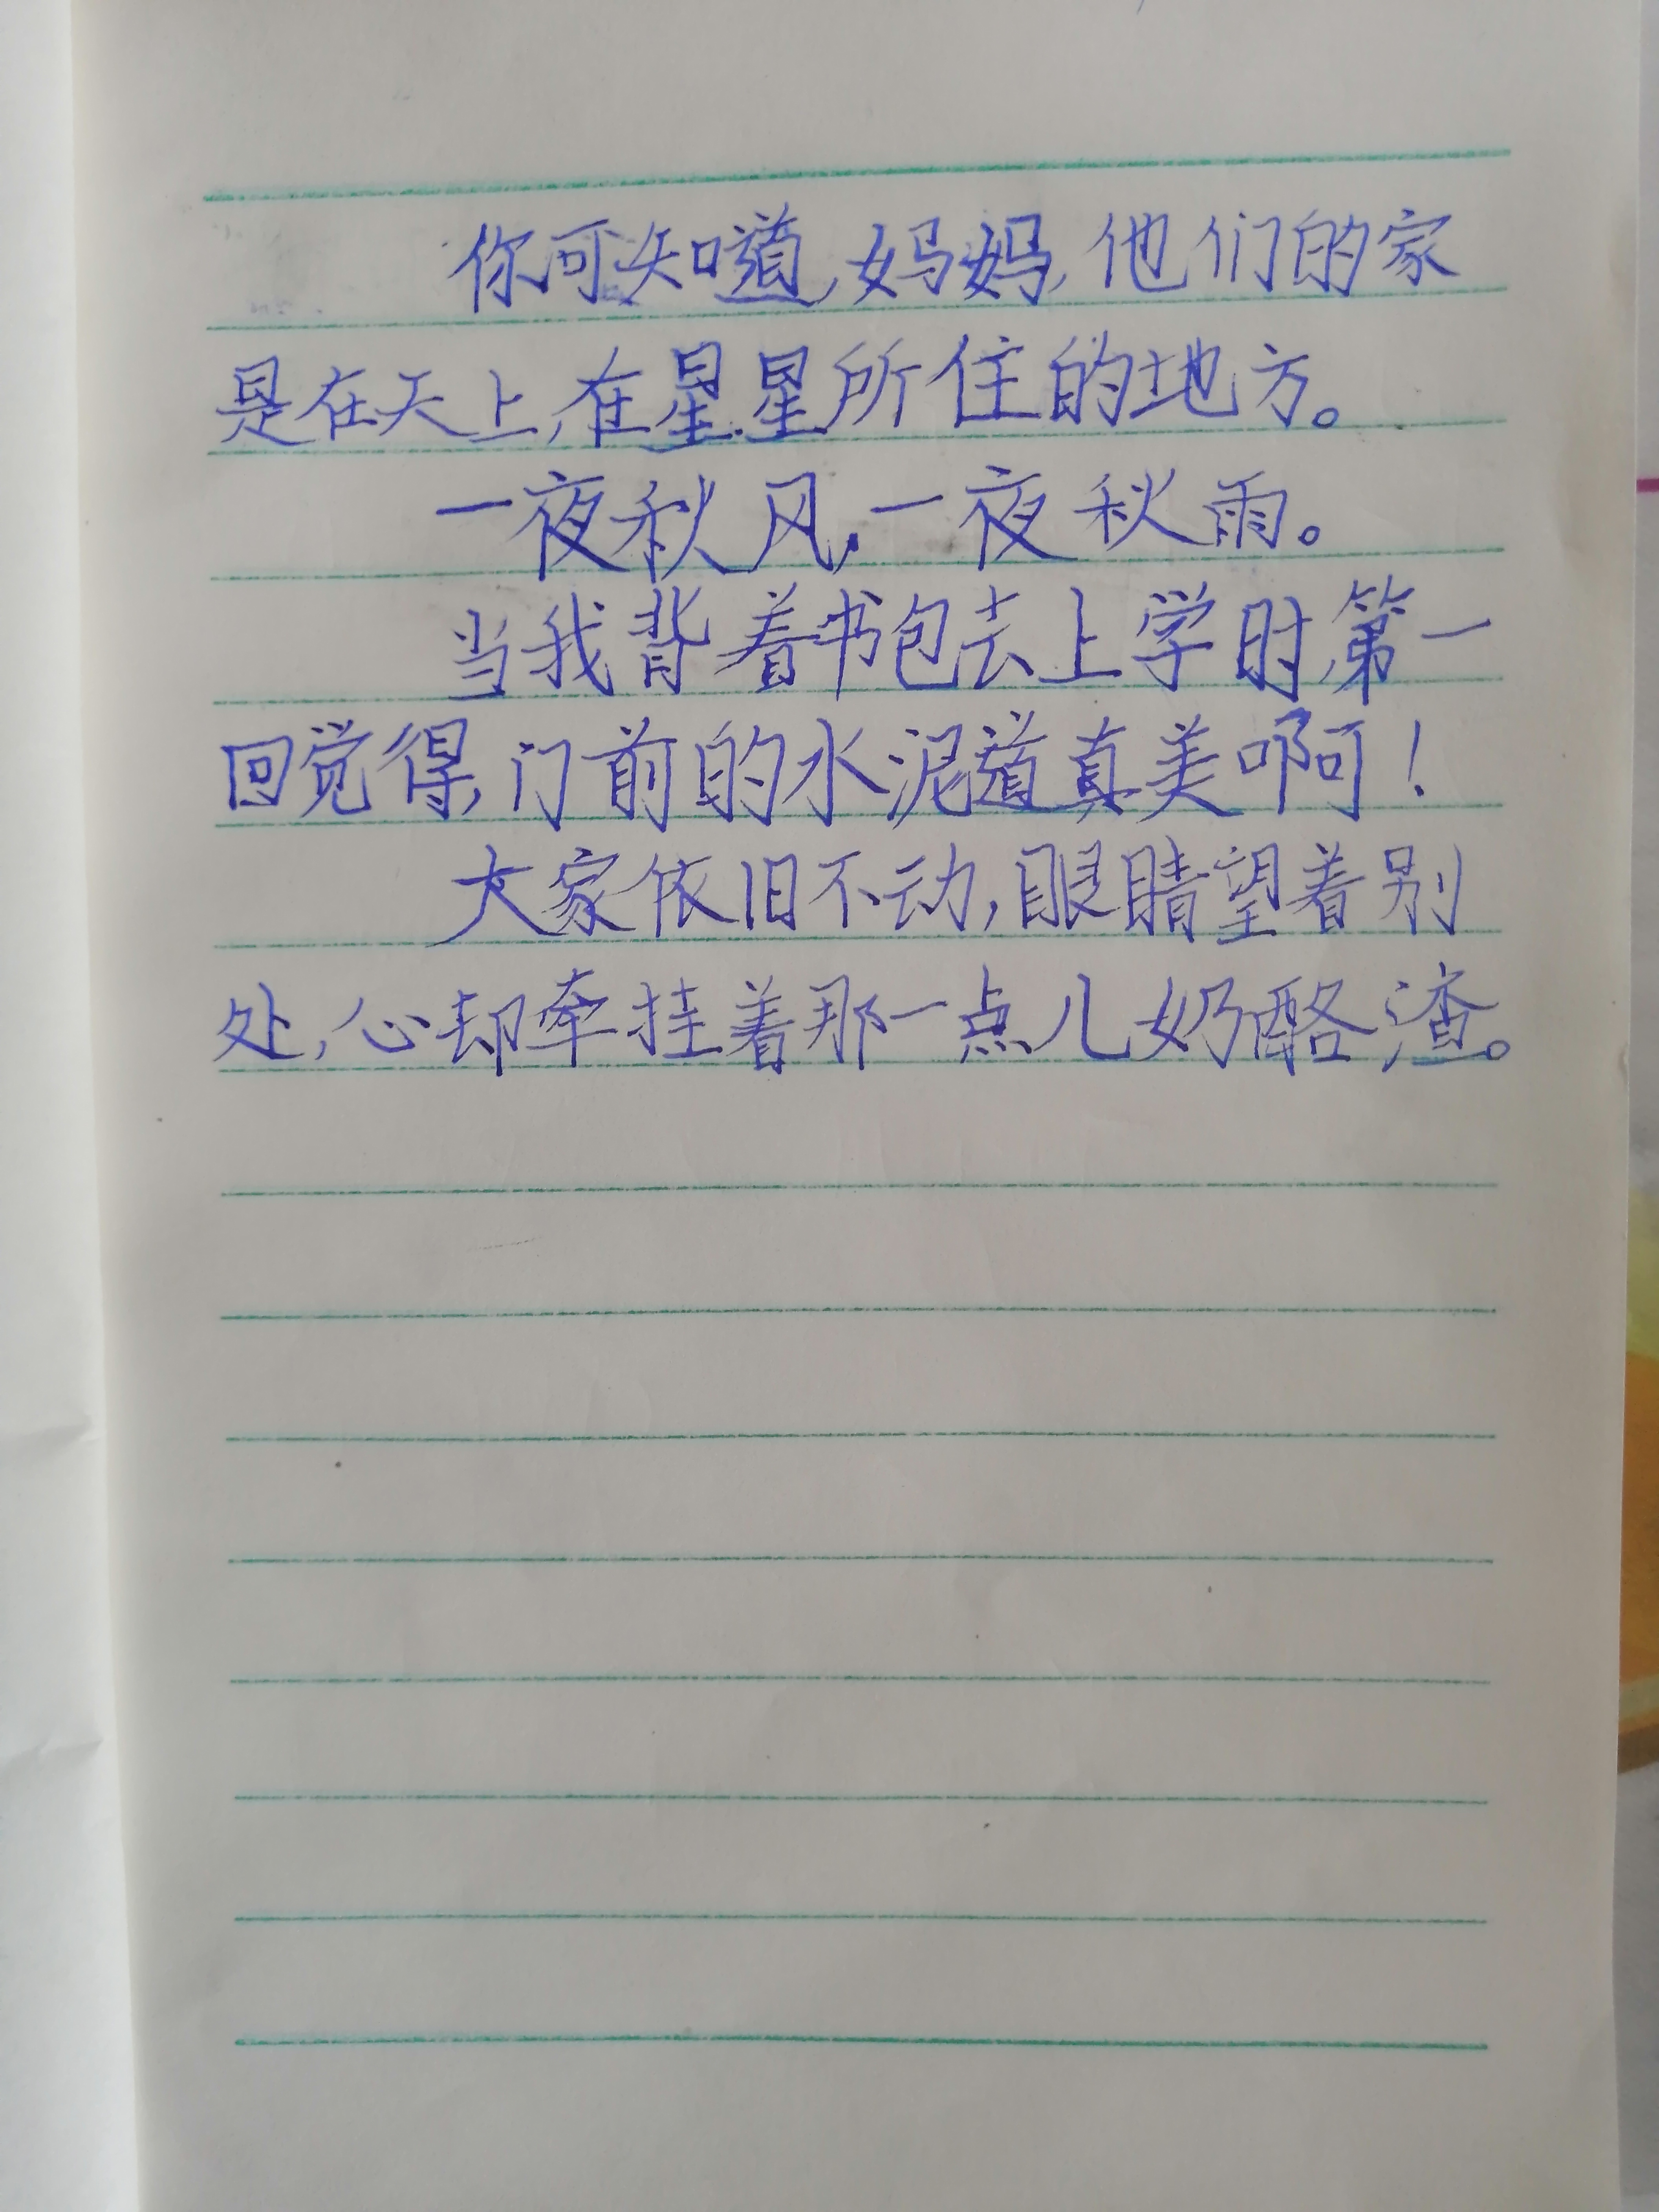 你可知道,妈妈,他们的家
是在天上,在星星所住的地方。
一夜秋风,一夜秋雨。
当我背着书包去上学时,第一
回觉得,门前的水泥道真美啊!
大家依旧不动,眼睛望着别
处,心却牵挂着那一点儿奶酪渣。